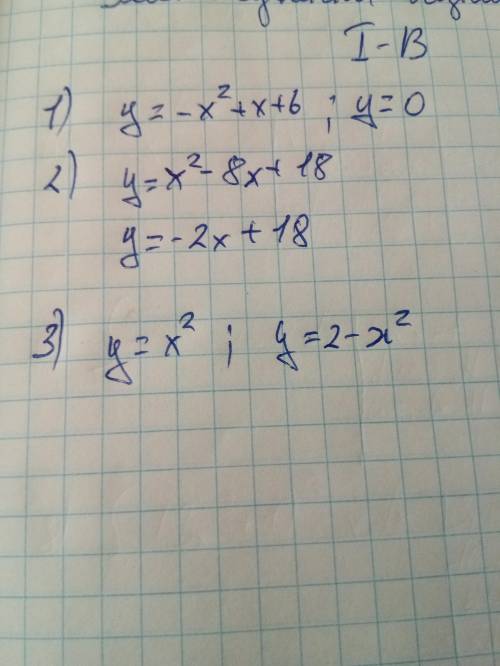 I-В
1) y=-x²+x+6 ; y=0
2) y=x²-8x+18
y=-2x+18
3) y=x² ; y=2-x²